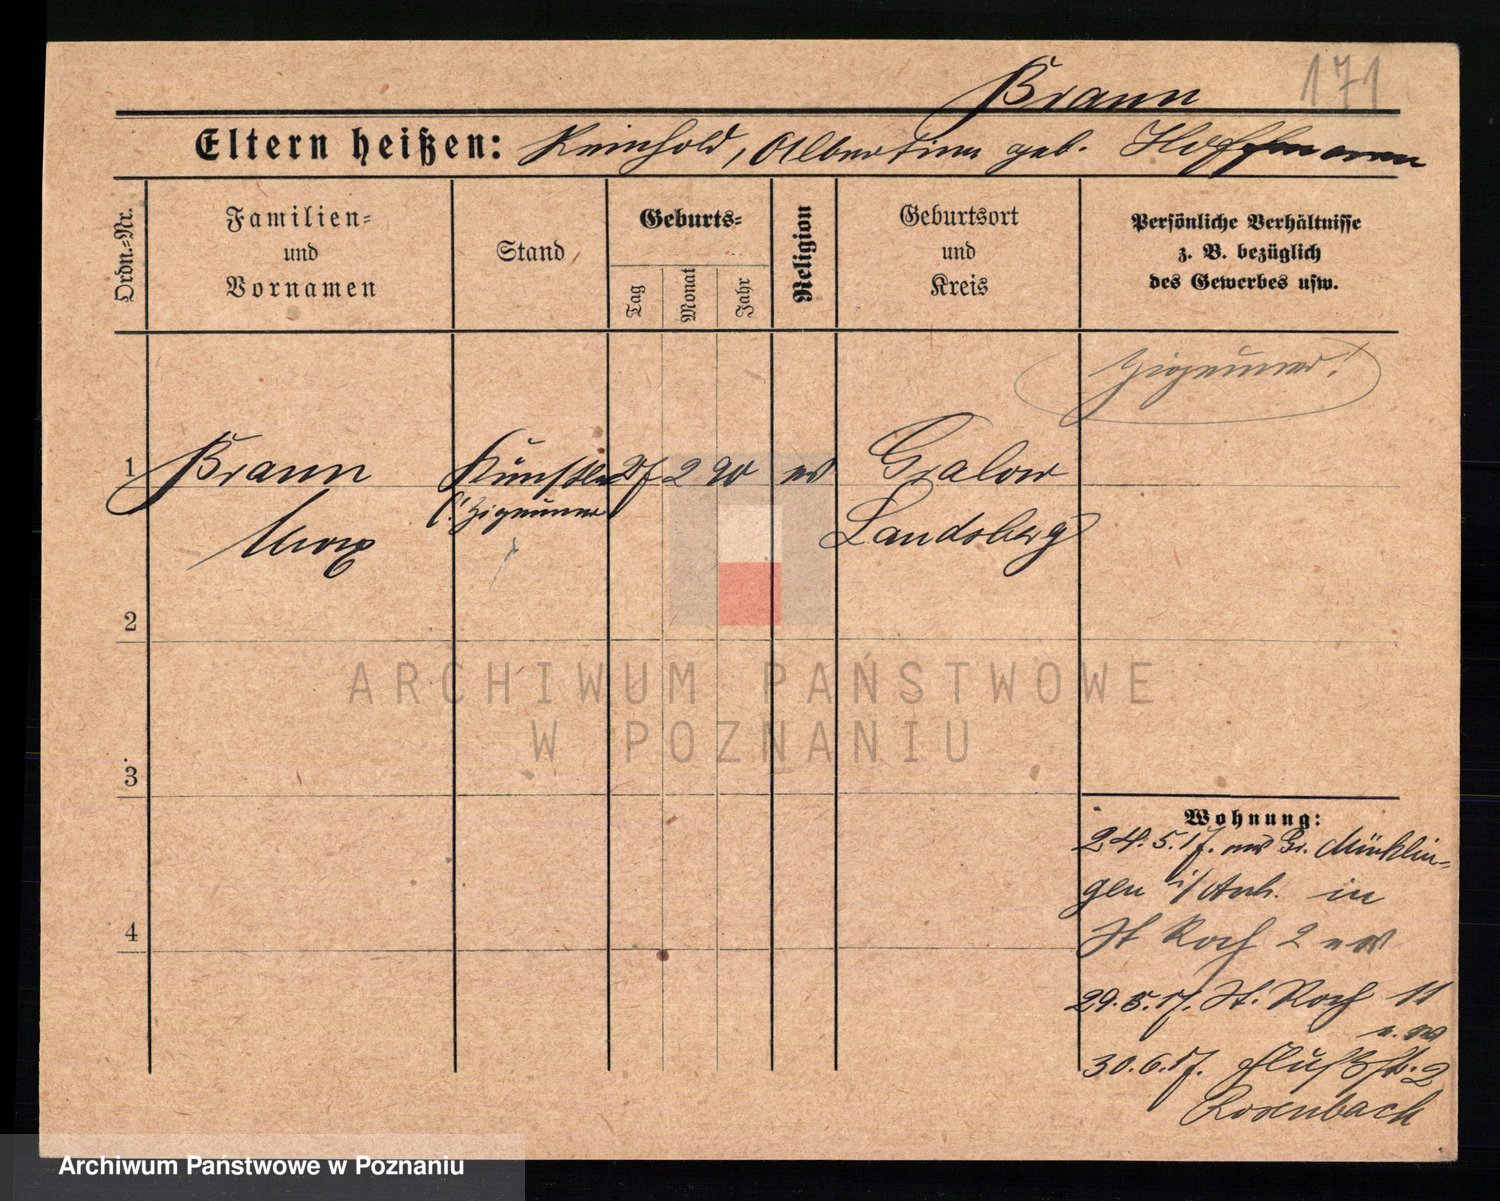 Braun 171
Eltern heißen: Reinhold, Albertine geb. Hoffmann
Ordn.-Nr.
Familien-
und
Vornamen
Stand
Geburts-
Tag
Monat
Jahr
Religion
Geburtsort
und
Kreis
Persönliche Verhältnisse
z. B. bezüglich
des Gewerbes usw.
Zigeuner!
1 Braun Künstler 27 2 90 ev Gralow
Zigeuner
Max Landsberg
2
3
4
ARCHIWUM PAŃSTWOWE
W POZNANIU
Wohnung:
24.5.17. Gr.
gen i/Anh. in
St Roch 2
29.5.17. St. Roch 11
30.6.17. Flußstr. 2
Rosenbach
Archiwum Państwowe w Poznaniu